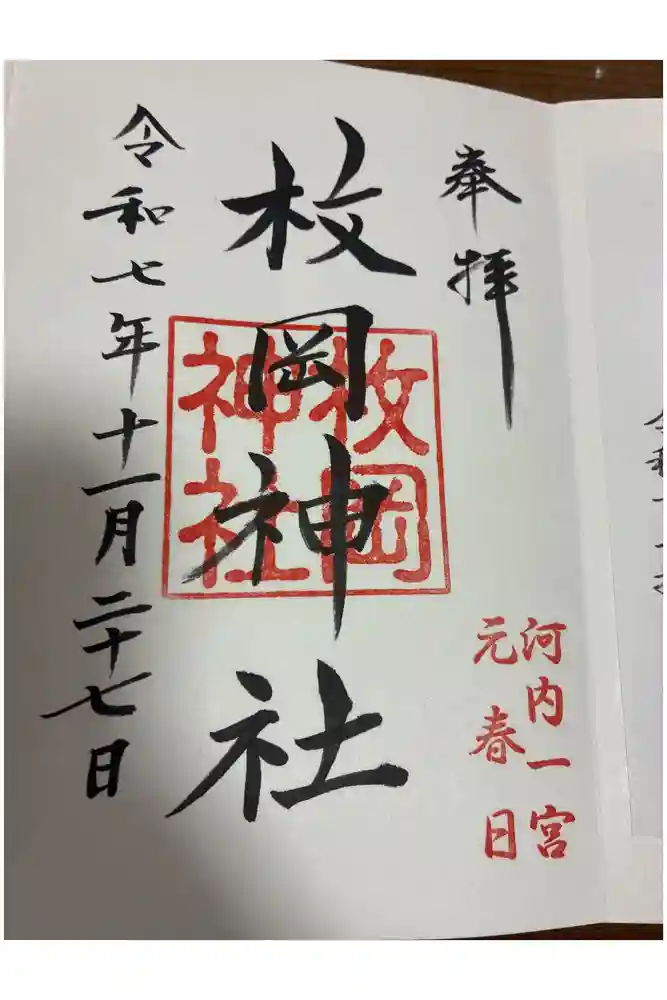 奉拝
河内一宮
元春日
枚岡神社
枚岡神社
令和七年十一月二十七日